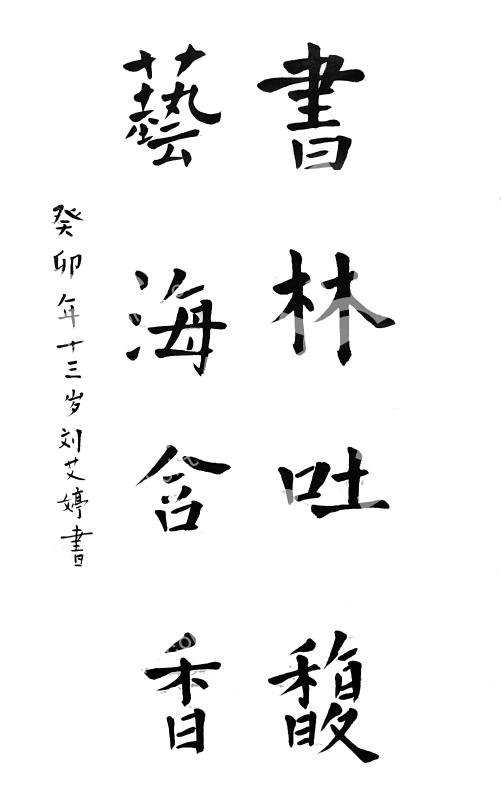 書林吐馥
藝海含香
癸卯年十三岁刘艾婷書